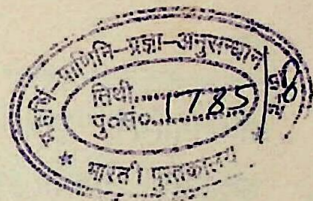 महर्षि-पाणिनि-प्रज्ञा-अनुसन्धान
तिथी..............
पु०सं०.... 1785
8
* भारती पुस्तकालय